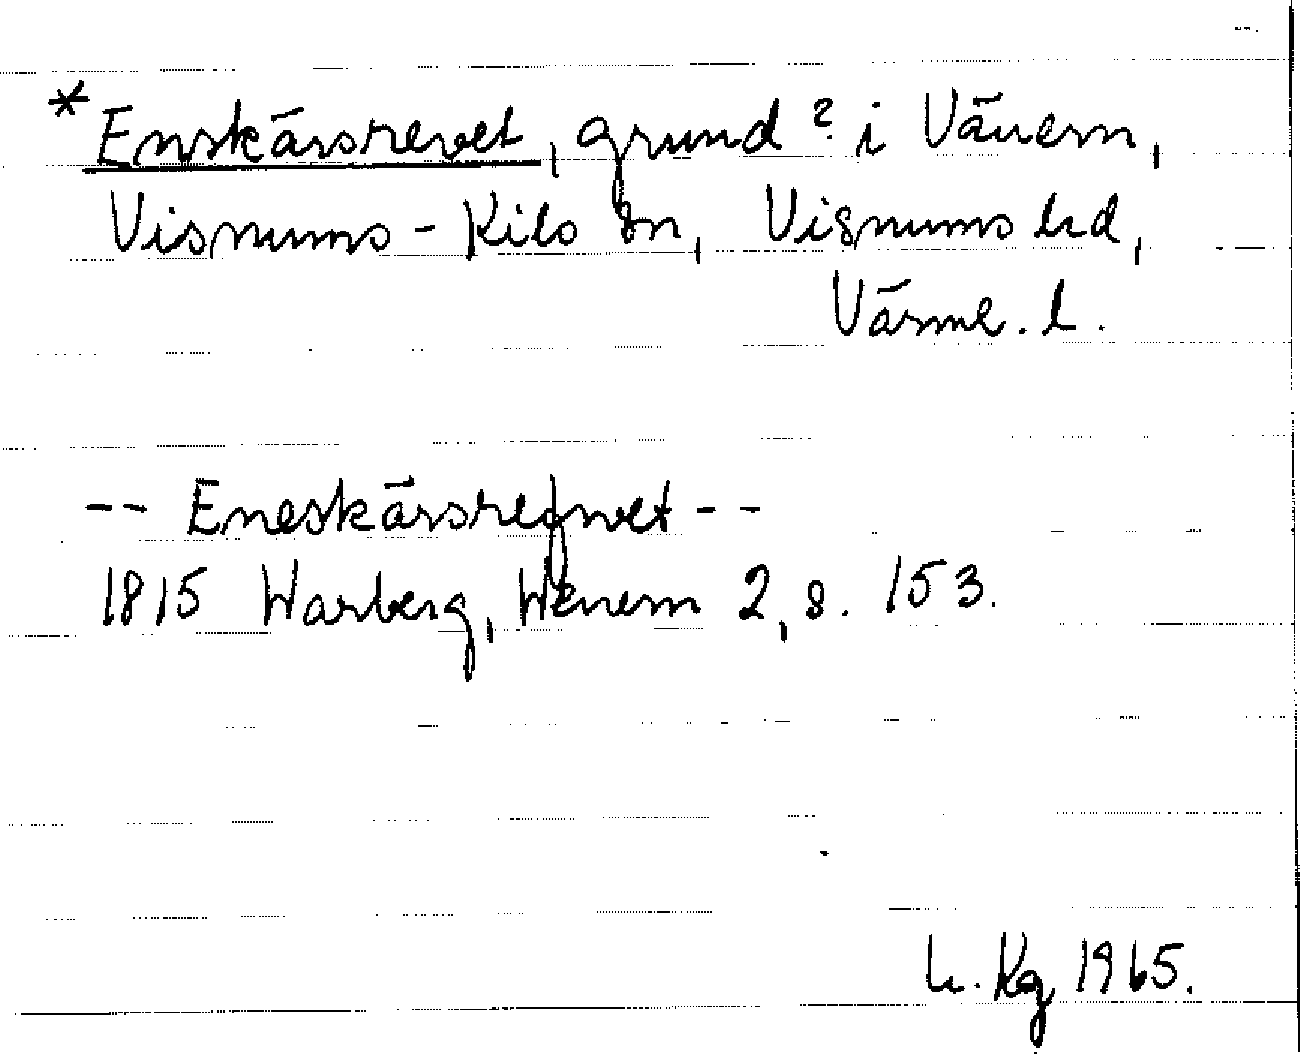 * Enskärsrevet, grund? i Vänern,
Visnums-Kils sn, Visnums hd,
Värml. l.
-- Eneskärsrefwet --
1815 Warberg, Wenern 2, s. 153.
Kg 1965.